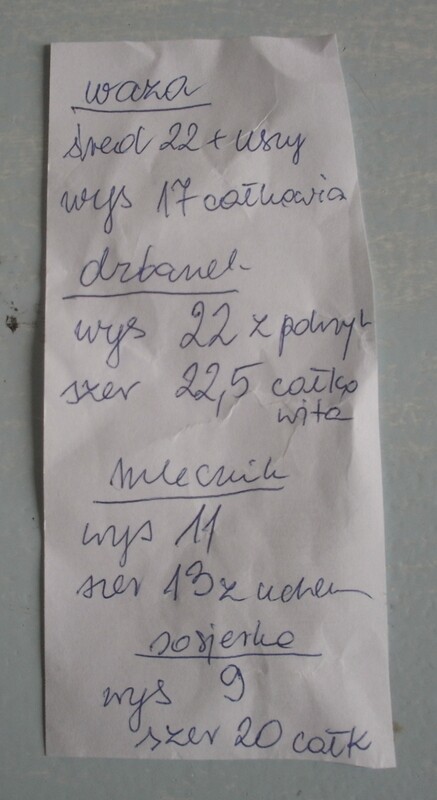 waza
śred 22 + uszy
wys 17 całkowia
dzbanek
wys 22 z pokryt
szer 22,5 całko
wita
mlecznik
wys 11
szer 13 z uchem
sosjerka
wys 9
szer 20 całk